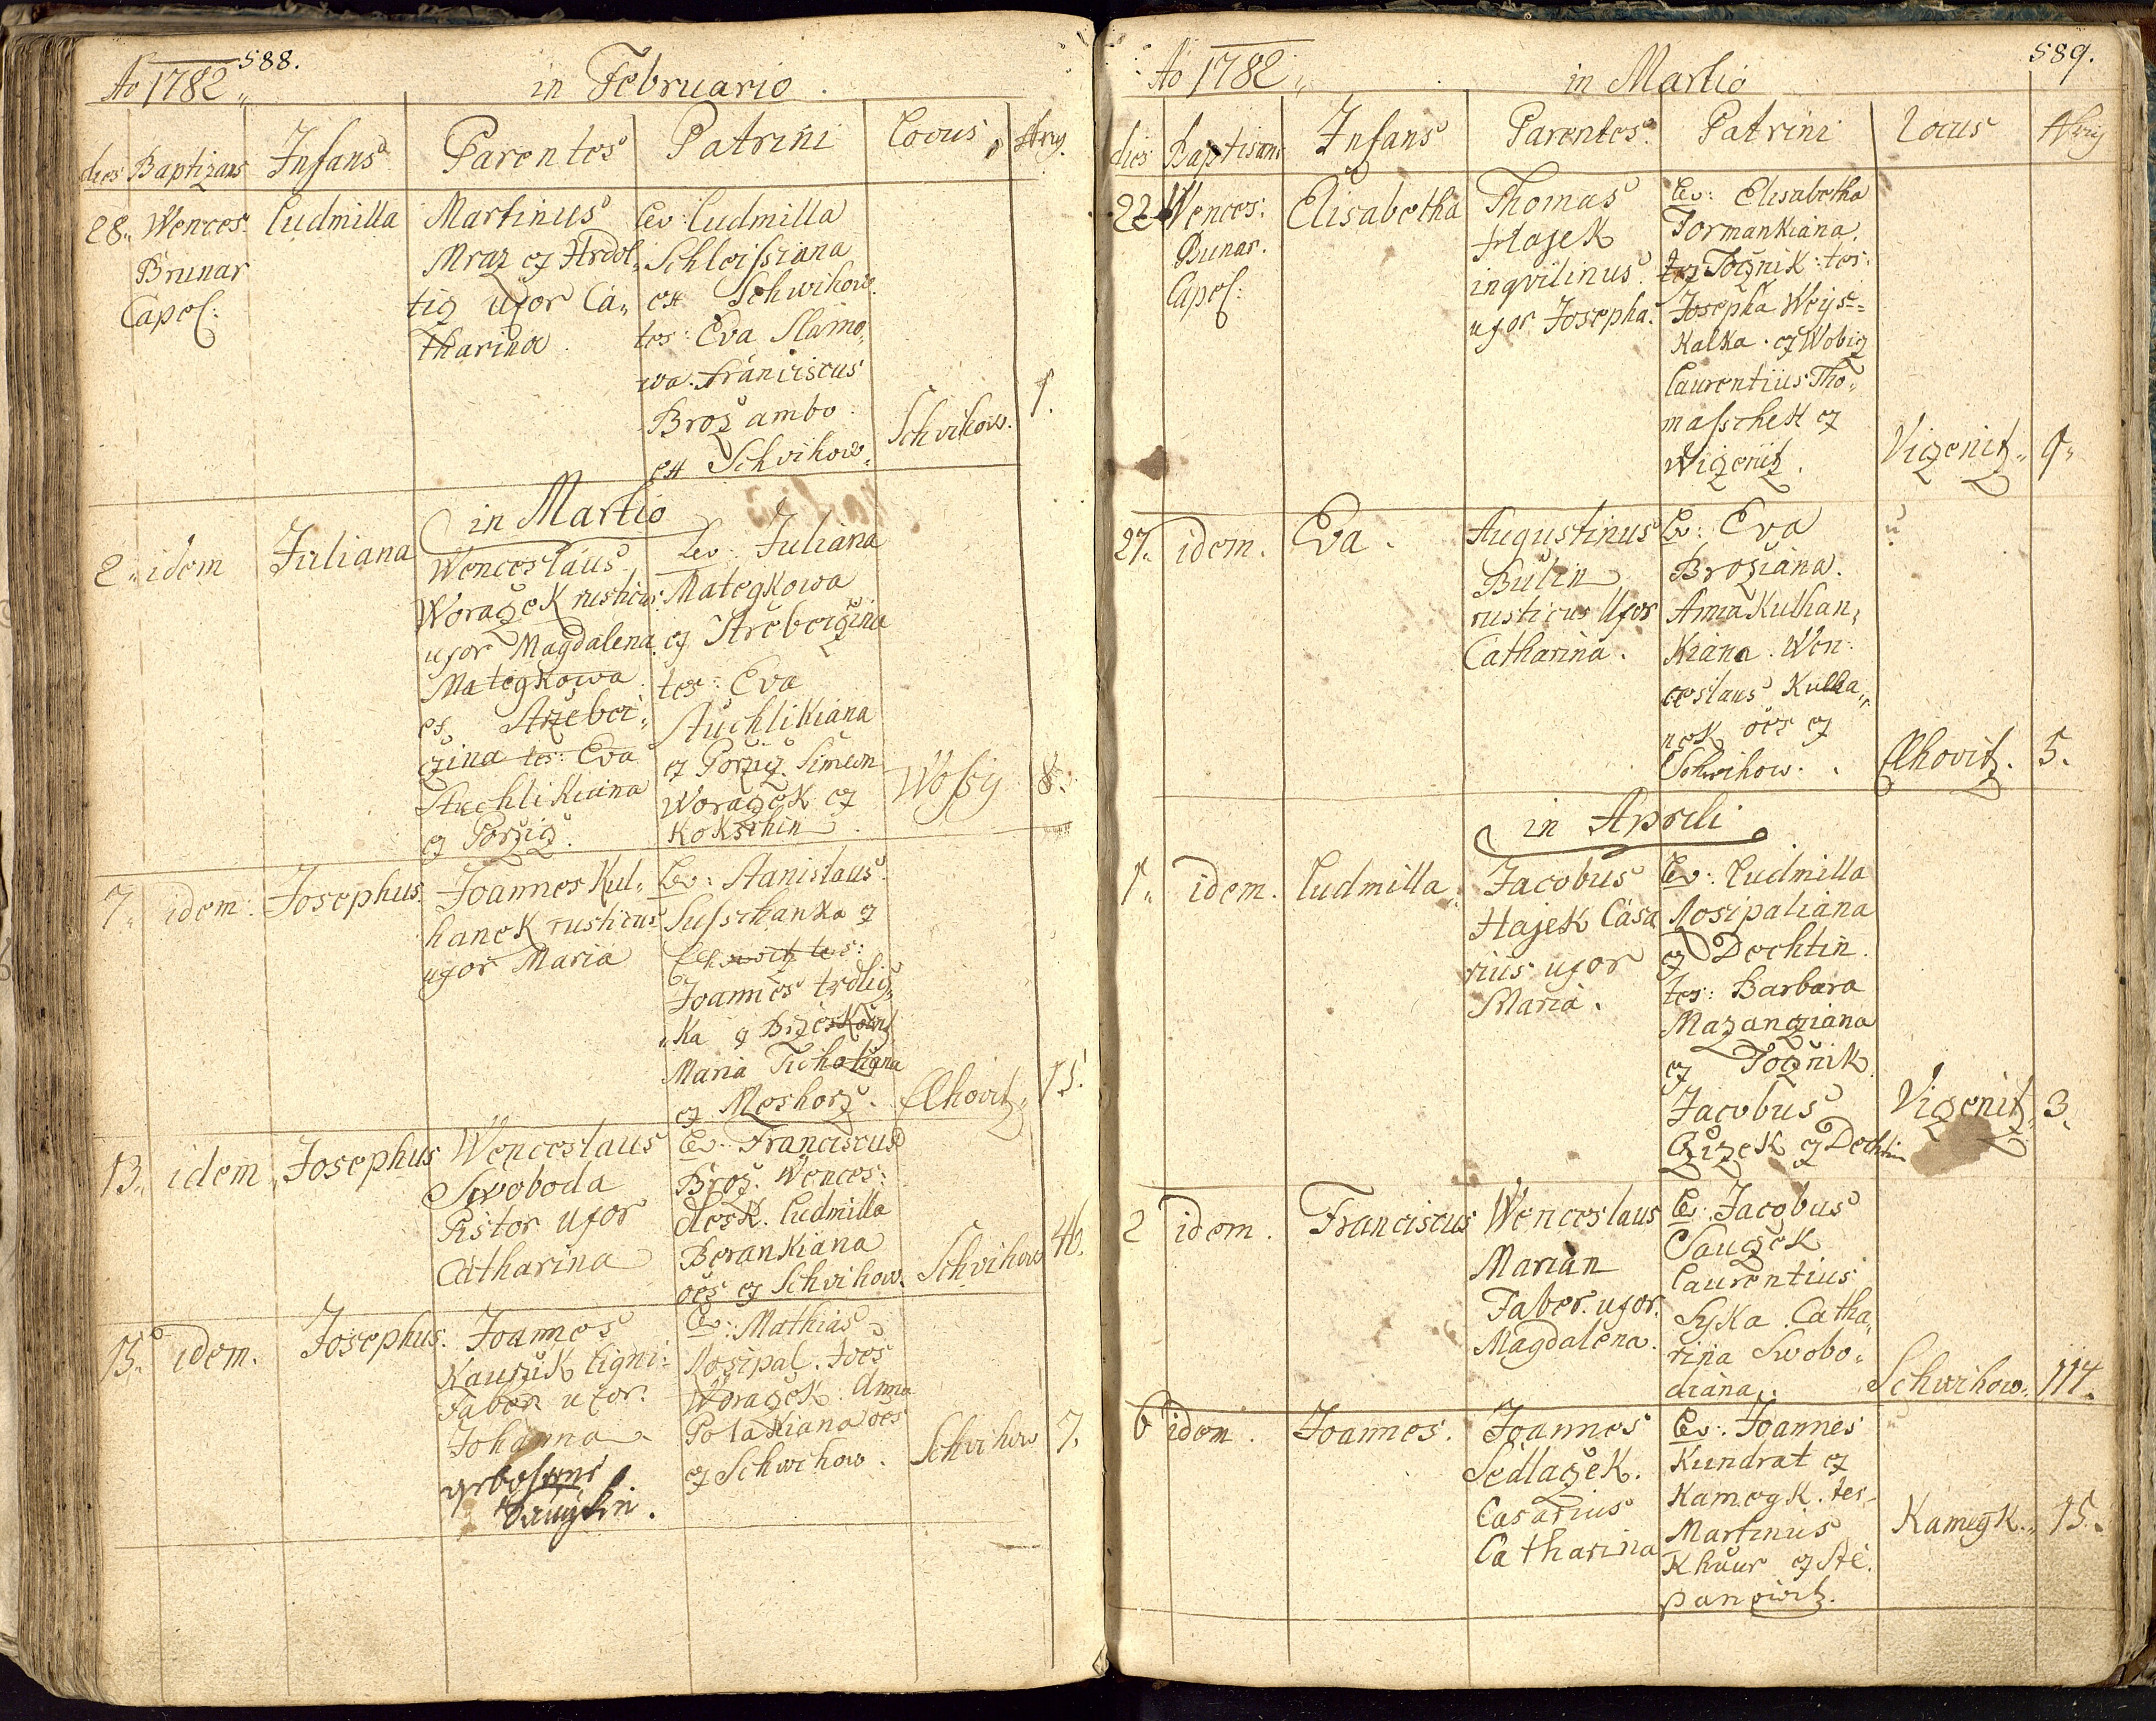 588.
Ao 1782
in Februario
dies Baptizans Infans Parentes Patrini Locus
28. Wences. Brunar Capel:
Ludmilla
Martinus
Mraz
tig uxor Ca„
tharina
Lev: Ludmilla
Schleissiana
ex Schwihow.
tes: Eva Slamo„
wa. Franciscus
Broz ambo
ex Schvihow.
Schvihow.
1.
in Martio
2. idem
Juliana
Wenceslaus
Worazek rusticus
uxor Magdalena
Mategkowa
ex
czina tes: Eva
Stuchlikiana
ex Porzicz.
Lev: Juliana
Mategkowa
ex
tes: Eva
Stuchlikiana
ex Porzicz. Simeon
Worazek ex
Kokschin
Wossy
8.
7. idem.
Josephus.
Joannes Kul„
hanek rusticus
uxor Maria
Lev: Stanislaus
ex
tes:
Joannes
„ka ex
Maria
ex Meshorz.
Elhovitz.
13. idem
Josephus
Wenceslaus
Swoboda
Pistor uxor
Catharina
Lev: Franciscus
Broz. Wences:
Ludmilla
Berankiana
oes ex Schvihow.
Schvihow
46.
15. idem.
Josephus.
Joannes
ligni:
Faber uxor.
Johanna
Lev: Mathias
Nosipal. Joes
Worazek. Anna
Polakiana oes
ex Schwihow.
Schvihow
7.
589.
Ao 1782
in Martio
dies Baptisans Infans Parentes Patrini Locus
22. Wences: Bunar. Capel:
Elisabetha
Thomas
Hajek
inqvilinus
uxor Josepha.
Lev: Elisabetha
Formankiana.
ex Tocznik: tes:
Josepha Weys=
kalka. ex
Laurentius Tho„
maschek ex
Wizenitz.
Vizenitz.
9.
27. idem.
Eva.
Augustinus
Bulin
rusticus Uxor
Catharina.
Lev: Eva
Broziana.
Anna Kulhan„
kiana. Wen:
ceslaus Kulha„
nek oes ex
Schwihow.
Elhovitz.
5.
in Aprili
1. idem.
Ludmilla
Jacobus
Hajek Casa
rius uxor
Maria.
Lev: Ludmilla
Nosipaliana
ex Dechtin.
tes: Barbara
Mazancziana
ex Tocznik.
Jacobus
Czizek ex Dechtin
Vizenitz.
3.
2 idem.
Franciscus
Wenceslaus
Marian
Faber. uxor.
Magdalena.
Lev: Jacobus
Sauczek
Laurentius
Syka. Catha„
rina Swobo„
diana.
Schwihow.
114.
6 idem.
Joannes.
Joannes
Sedlaczek.
Casarius
Catharina
Lev. Joannes
Kundrat ex
Kamegk. tes.
Martinus
ex Ste.
panowitz.
Kamegk.
15.